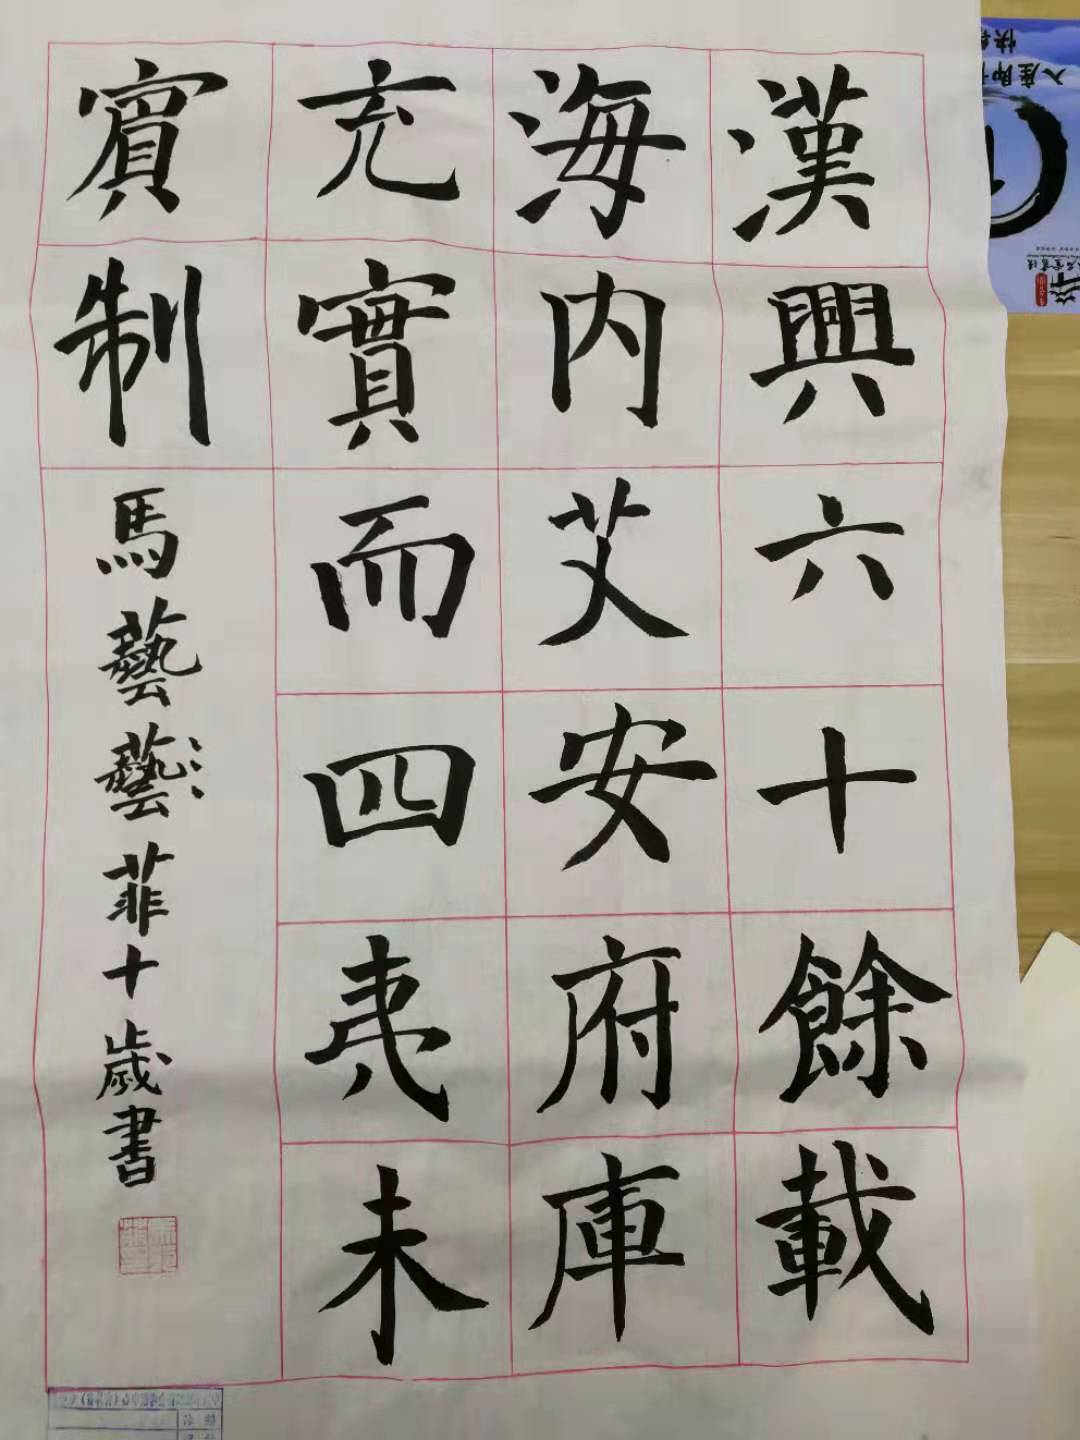 漢興六十餘載
海内艾安府庫
充實而四夷未
賓制
馬藝藝菲十歲書